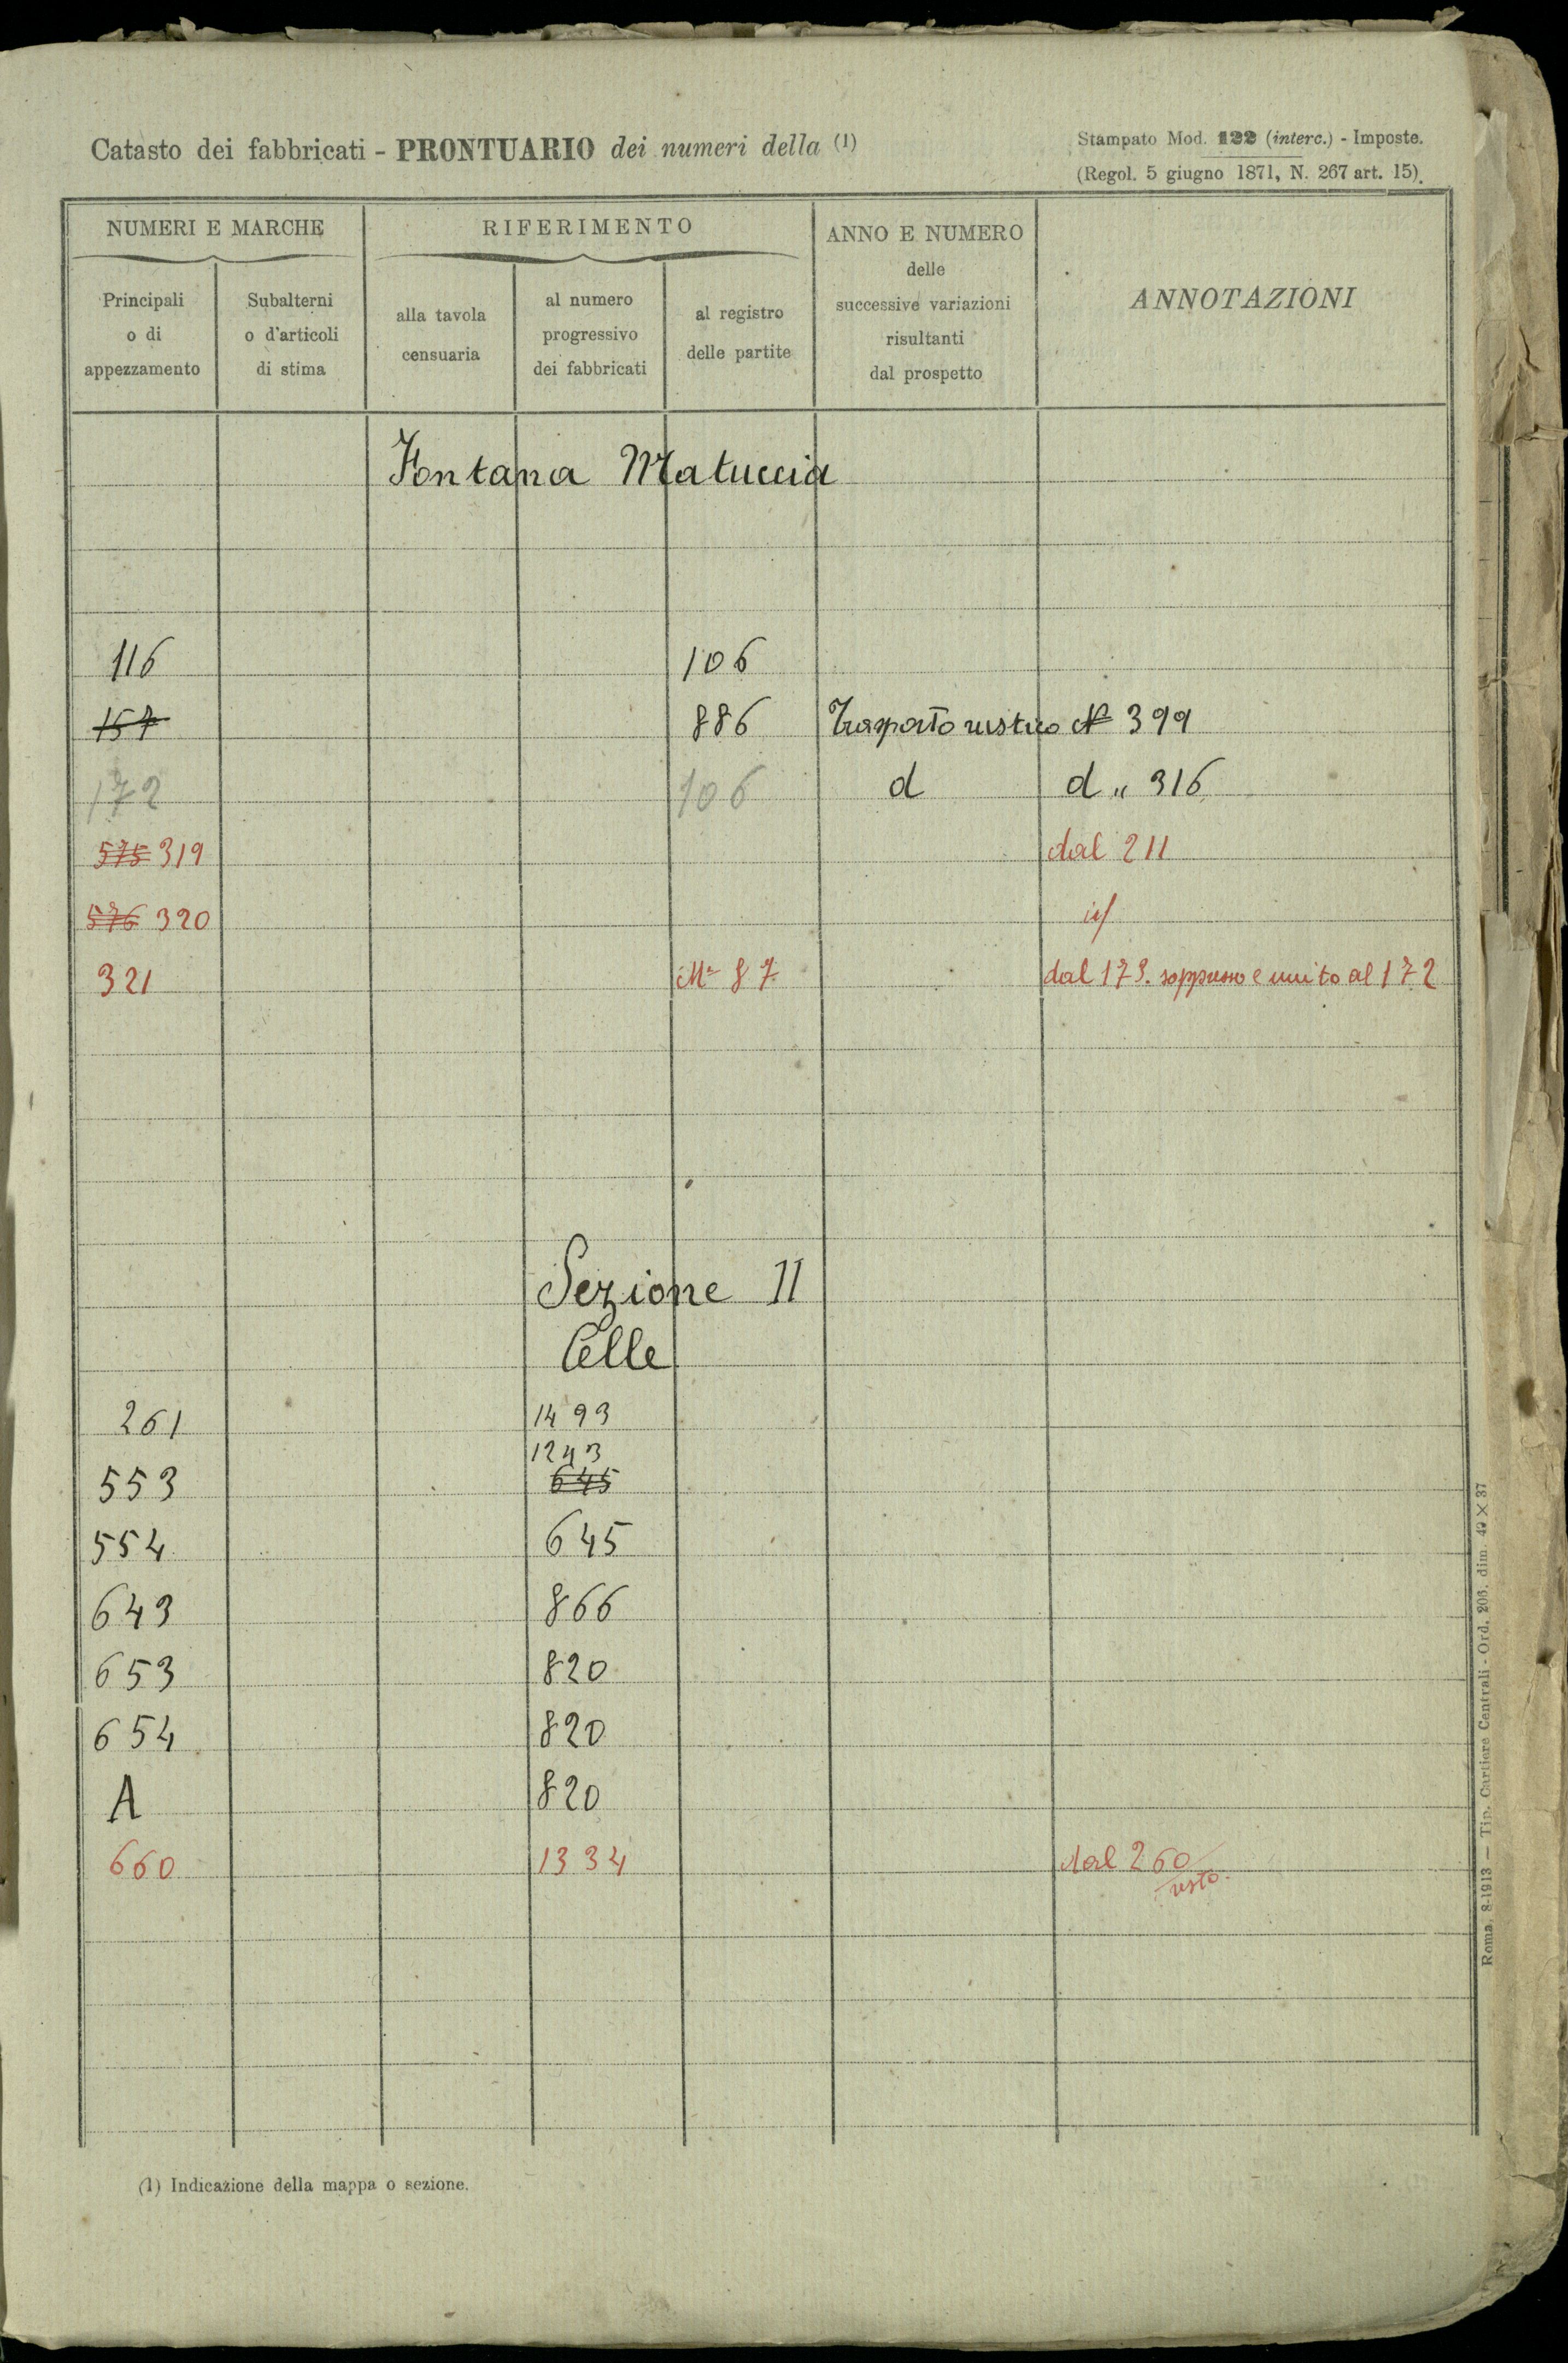 Catasto dei fabbricati - PRONTUARIO dei numeri della (1)
Stampato Mod. 122 (interc.) - Imposte.
(Regol. 5 giugno 1871, N. 267 art. 15).
NUMERI E MARCHE
RIFERIMENTO
ANNO E NUMERO
delle
successive variazioni
risultanti
dal prospetto
ANNOTAZIONI
Principali
o di
appezzamento
Subalterni
o d'articoli
di stima
alla tavola
censuaria
al numero
progressivo
dei fabbricati
al registro
delle partite
Fontana Matuccia
116 106
157 886 Trasporto rustico N 399
172 106 d d " 316
575 319 dal 211
576 320
321 Ma 87 dal 173. soppresso e unito al 172
Sezione II
Celle
261 1493
1243
553 645
554 645
643 866
653 820
654 820
A 820
660 1334 dal 260
(1) Indicazione della mappa o sezione.
Roma, 8-1913 — Tip. Cartiere Centrali - Ord. 206. dim. 49 × 37